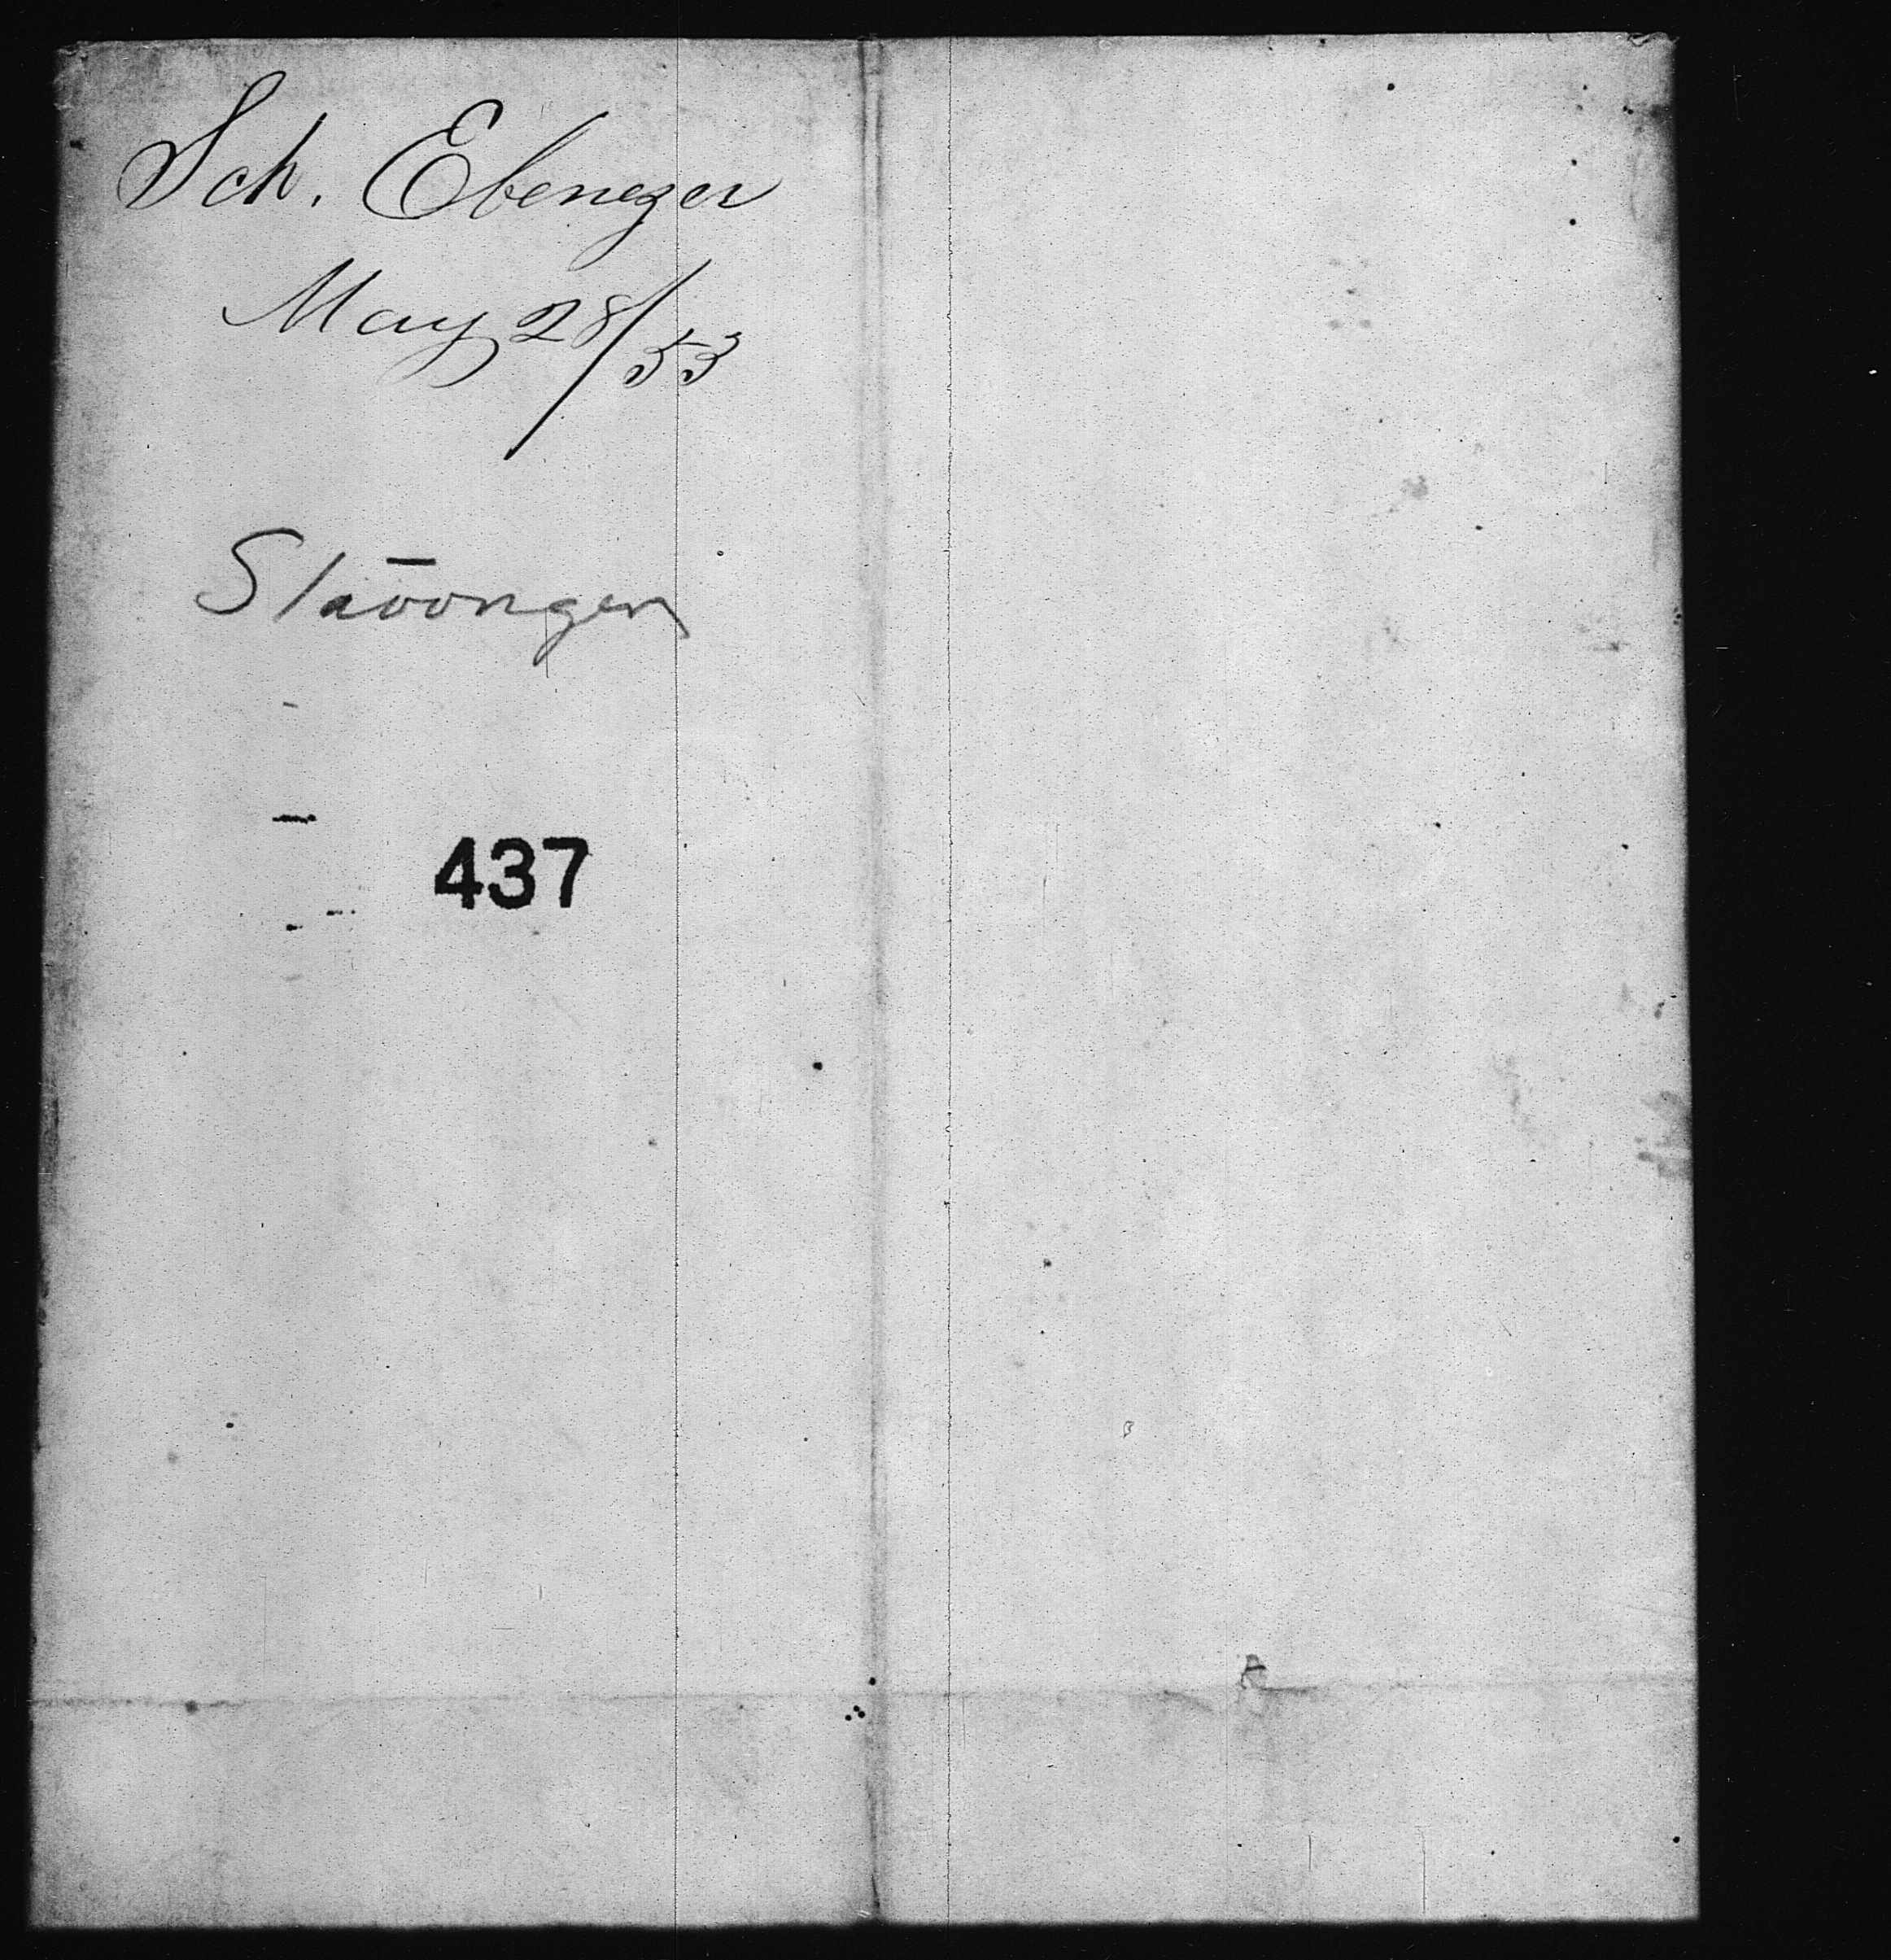 Sch. Ebenezer
May 28/53
Stavongen
437